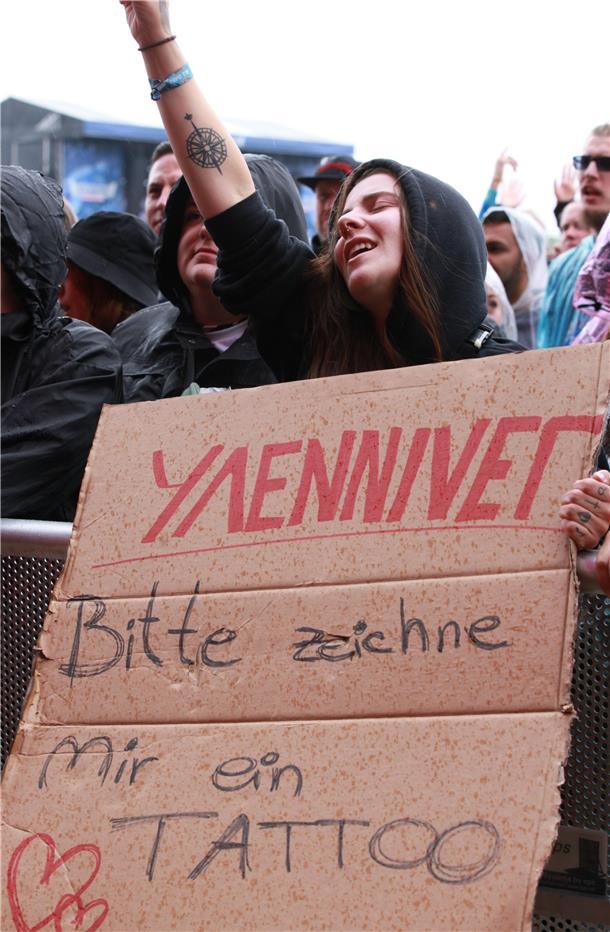 YAENNIVER
Bitte zeichne
Mir ein
TATTOO